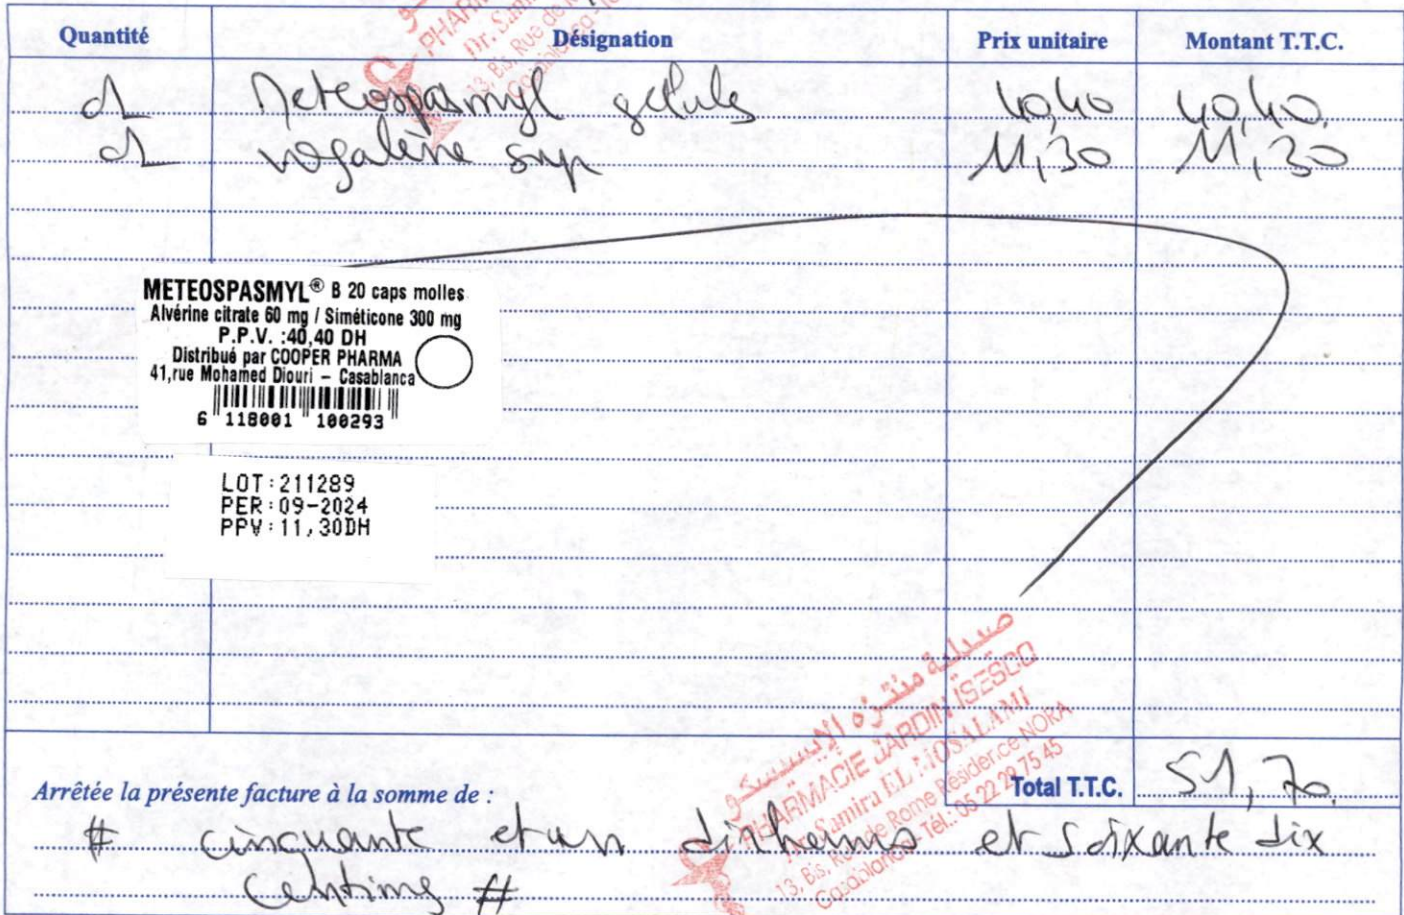 Quantité Désignation Prix unitaire Montant T.T.C.
1 Meteospasmyl gelules 40,40 40,40
1 vogalène sup 11,30 11,30
METEOSPASMYL® B 20 caps molles
Alvérine citrate 60 mg / Siméticone 300 mg
P.P.V. :40,40 DH
Distribué par COOPER PHARMA
41,rue Mohamed Diouri – Casablanca
6 118001 100293
LOT:211289
PER:09-2024
PPV:11,30DH
صيدلية منتزه الإيسيسكو
PHARMACIE JARDIN ISESCO
Samira EL MOSALAMI
13, Bis, Rue de Rome Résidence NOKA
Casablanca - Tél.: 05 22 29 75 45
Total T.T.C. 51,70
Arrêtée la présente facture à la somme de :
# cinquante et un dirhams et soixante dix
centimes #